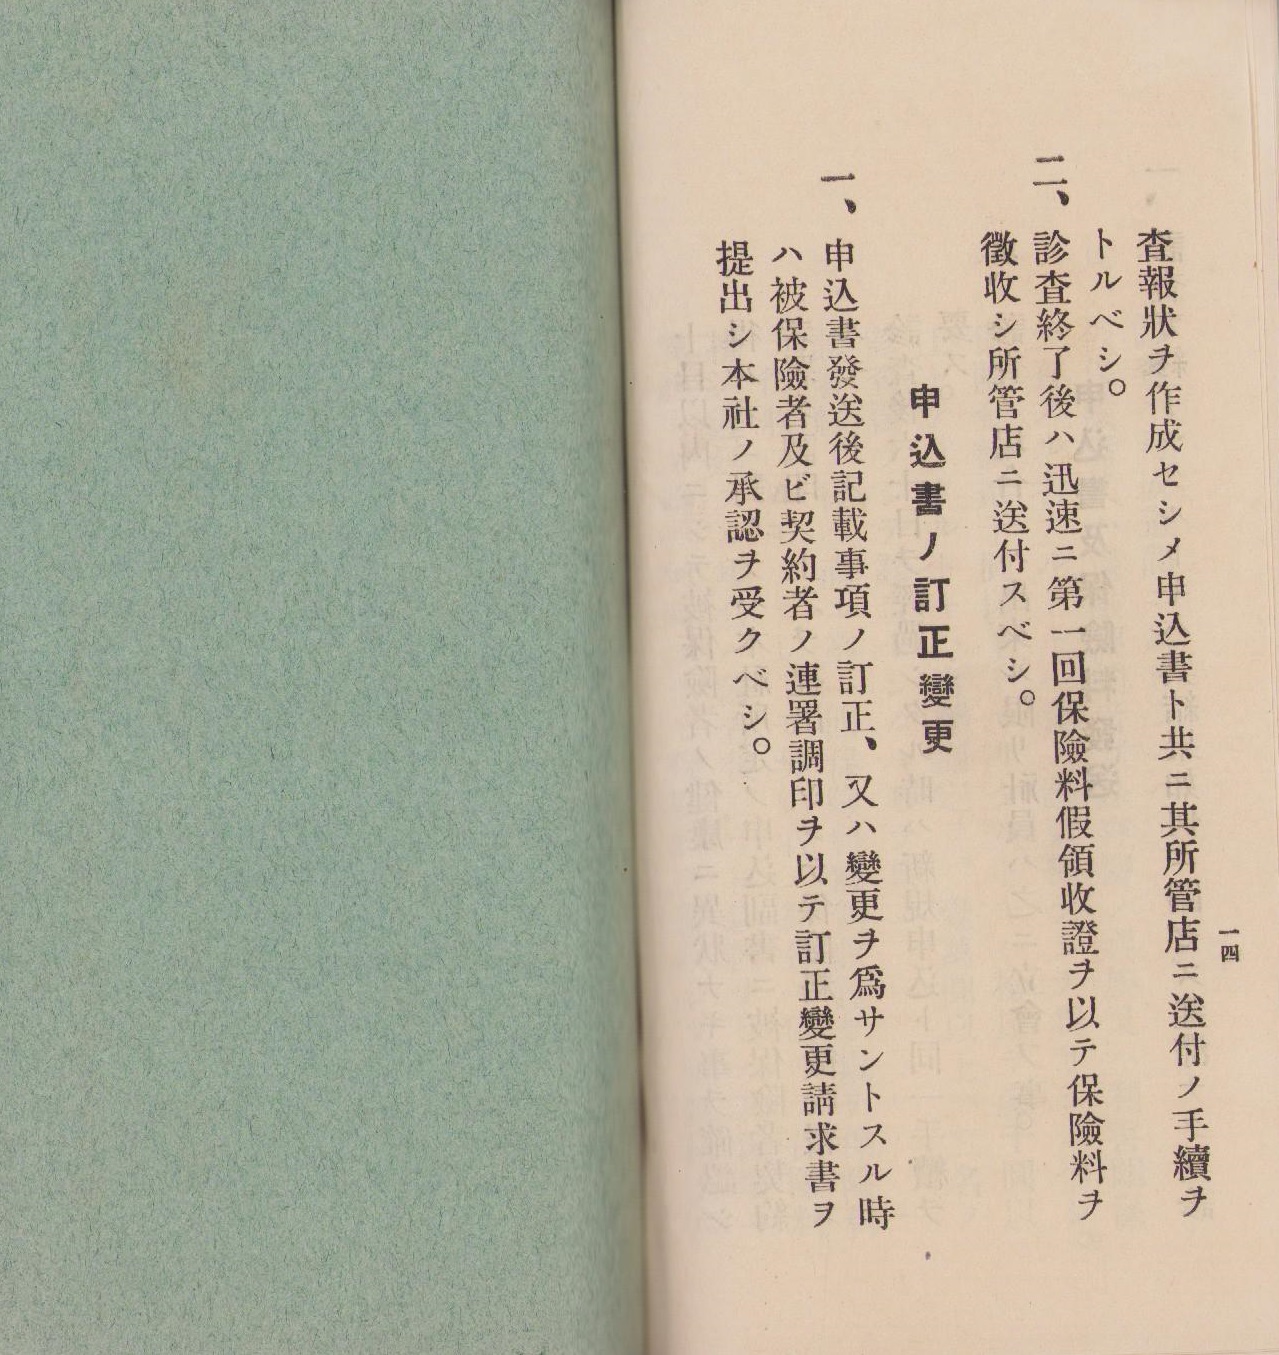 一四
査報狀ヲ作成セシメ申込書ト共ニ其所管店ニ送付ノ手續ヲ
トルベシ。
二、診査終了後ハ迅速ニ第一回保險料假領收證ヲ以テ保險料ヲ
徵收シ所管店ニ送付スベシ。
申込書ノ訂正變更
一、申込書發送後記載事項ノ訂正、又ハ變更ヲ爲サントスル時
ハ被保險者及ビ契約者ノ連署調印ヲ以テ訂正變更請求書ヲ
提出シ本社ノ承認ヲ受クベシ。